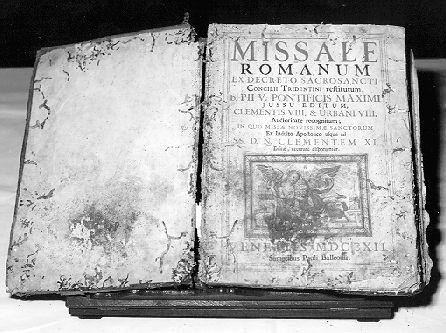 MISSALE
ROMANUM
EX DECRETO SACROSANCTI
CONCILII TRIDENTINI restitutum.
PII V. PONTIFICIS MAXIMI
JUSSU EDITUM,
CLEMENTIS VIII. & URBANI VIII.
Auctoritate recognitum;
IN QUO MISSÆ NOVISSIMÆ SANCTORUM
Ex Indulto Apostolico usque ad
D. N. CLEMENTEM XI.
VENETIIS
Sumptibus Pauli Balleonii